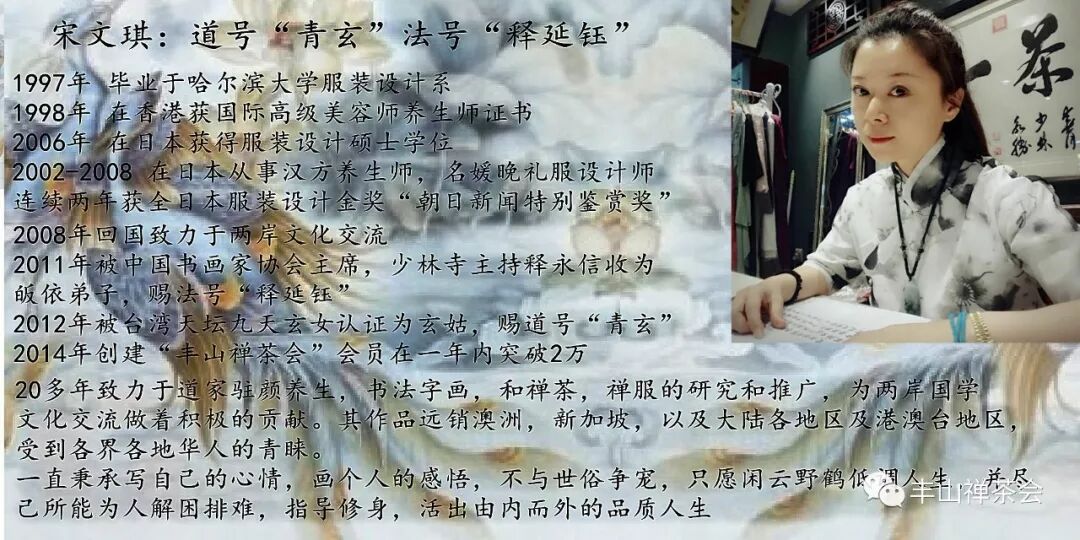 宋文琪：道号“青玄”法号“释延钰”
1997年 毕业于哈尔滨大学服装设计系
1998年 在香港获国际高级美容师养生师证书
2006年 在日本获得服装设计硕士学位
2002-2008 在日本从事汉方养生师，名媛晚礼服设计师
连续两年获全日本服装设计金奖“朝日新闻特别鉴赏奖”
2008年回国致力于两岸文化交流
2011年被中国书画家协会主席，少林寺主持释永信收为
皈依弟子，赐法号“释延钰”
2012年被台湾天坛九天玄女认证为玄姑，赐道号“青玄”
2014年创建“丰山禅茶会”会员在一年内突破2万
20多年致力于道家驻颜养生，书法字画，和禅茶，禅服的研究和推广，为两岸国学
文化交流做着积极的贡献。其作品远销澳洲，新加坡，以及大陆各地区及港澳台地区，
受到各界各地华人的青睐。
一直秉承写自己的心情，画个人的感悟，不与世俗争宠，只愿闲云野鹤低调人生，并尽
己所能为人解困排难，指导修身，活出由内而外的品质人生
茶
丰山禅茶会